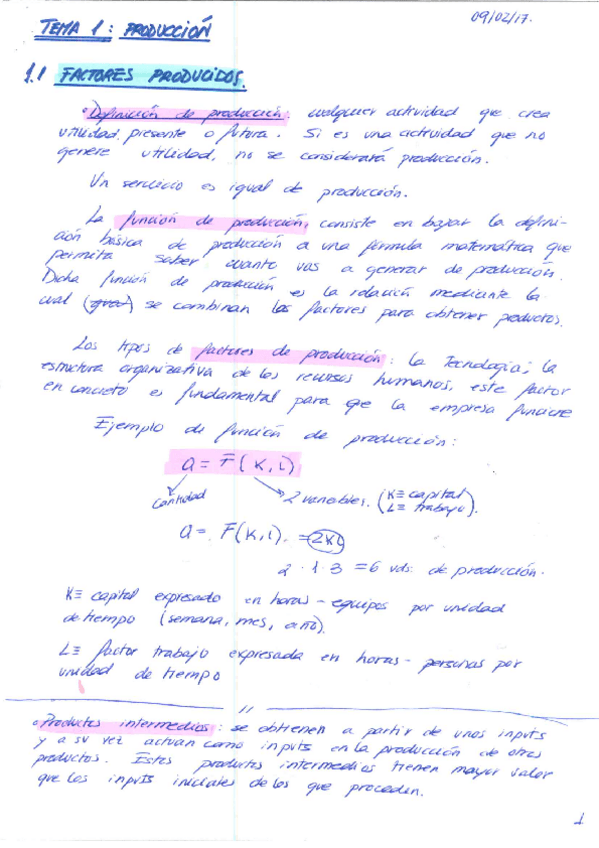 09/02/17.
TEMA 1: PRODUCCIÓN
1.1 FACTORES PRODUCIDOS.
• Definición de producción: cualquier actividad que crea
utilidad presente o futura. Si es una actividad que no
genere utilidad, no se considerará producción.
Un servicio es igual de producción.
La función de producción, consiste en bajar la defini-
ción básica de producción a una fórmula matemática que
permita saber cuanto vas a generar de producción.
Dicha función de producción es la relación mediante la
cual se combinan los factores para obtener productos.
Los tipos de factores de producción: la Tecnología; la
estructura organizativa de los recursos humanos, este factor
en concreto es fundamental para que la empresa funcione
Ejemplo de función de producción:
Q = F(K, L)
Cantidad
2 variables. (K ≡ capital
L ≡ trabajo).
Q = F(K, L). = 2KL
2 · 1 · 3 = 6 uds. de producción.
K ≡ capital expresado en horas - equipos por unidad
de tiempo (semana, mes, año).
L ≡ factor trabajo expresada en horas - personas por
unidad de tiempo
• Productos intermedios: se obtienen a partir de unos inputs
y a su vez actúan como inputs en la producción de otros
productos. Estos productos intermedios tienen mayor valor
que los inputs iniciales de los que proceden.
1